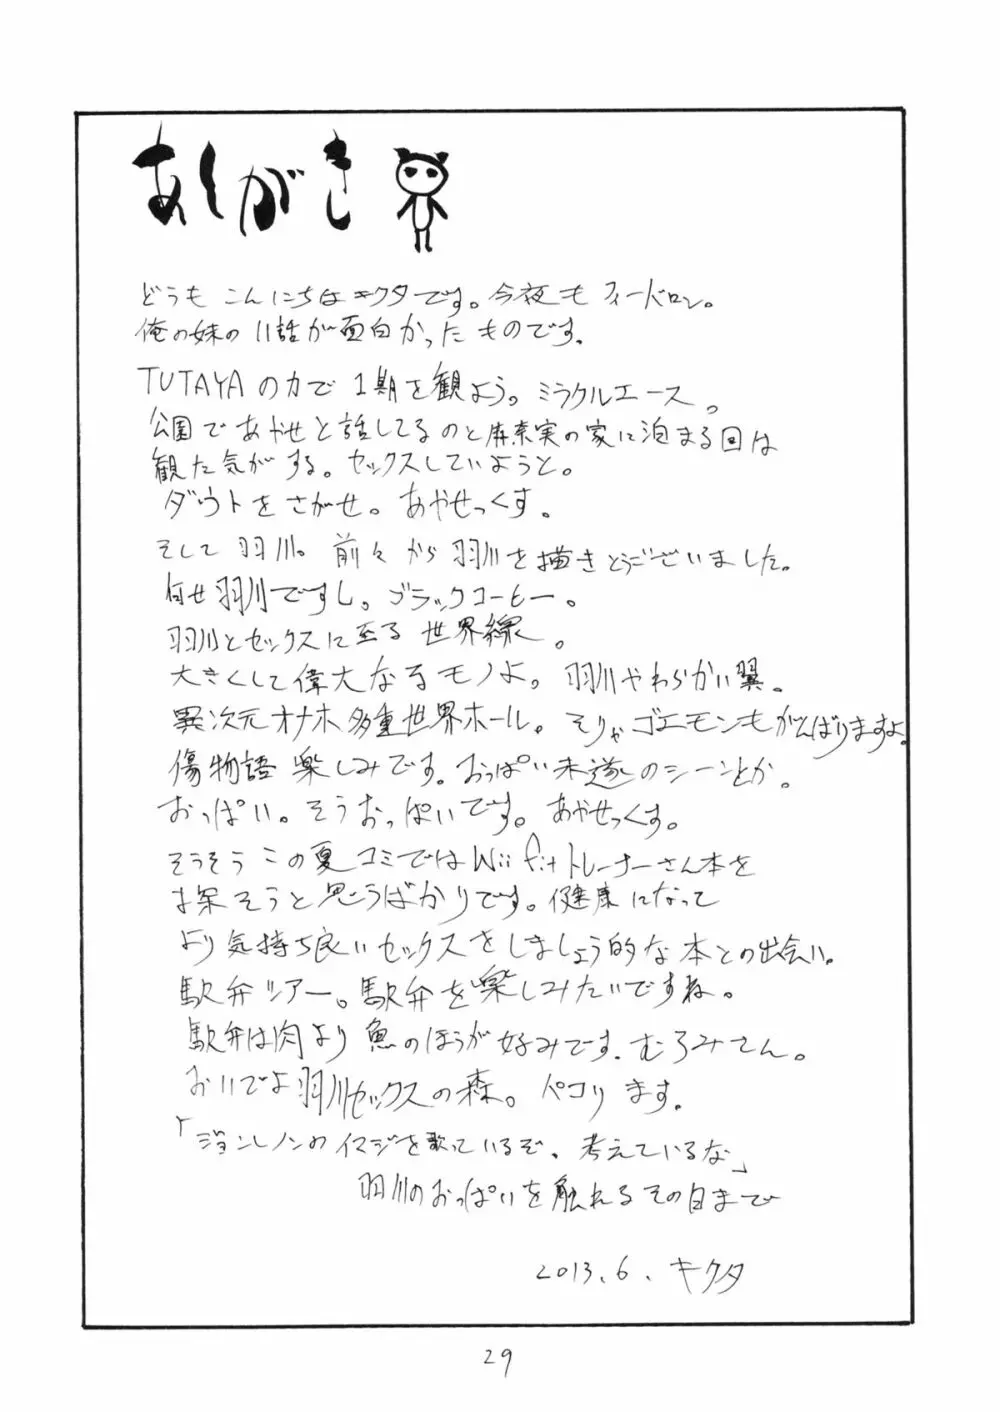 あとがき
どうも こんにちは キクタです。今夜も フィードロン。
俺の妹の 11話が面白かった ものです。
TUTAYAの力で 1期を観よう。ミラクルエース。
公園で あやせと話してるのと麻奈実の家に泊まる回は
観た気がする。セックスしていようと。
ダウトをさがせ。あやせっくす。
そして 羽川。前々から羽川を描きとうございました。
何せ羽川ですし。ブラックコーヒー。
羽川とセックスに至る世界線。
大きくして偉大なるモノよ。羽川やわらかい翼。
異次元オナホ多重世界ホール。そりゃゴエモンもがんばりますよ。
傷物語楽しみです。おっぱい未遂のシーンとか。
おっぱい。そうおっぱいです。あやせっくす。
そうそう この夏コミではWii fitトレーナーさん本を
探そうと思うばかりです。健康になって
より気持ち良いセックスをしましょう的な本との出会い。
駅弁ツアー。駅弁を楽しみたいですね。
駅弁は肉より魚のほうが好みです。むろみさん。
おいでよ羽川セックスの森。ペコリます。
「ジョンレノンのイマジを歌っているぞ、考えているな」
羽川のおっぱいを触れるその日まで
2013.6. キクタ
29